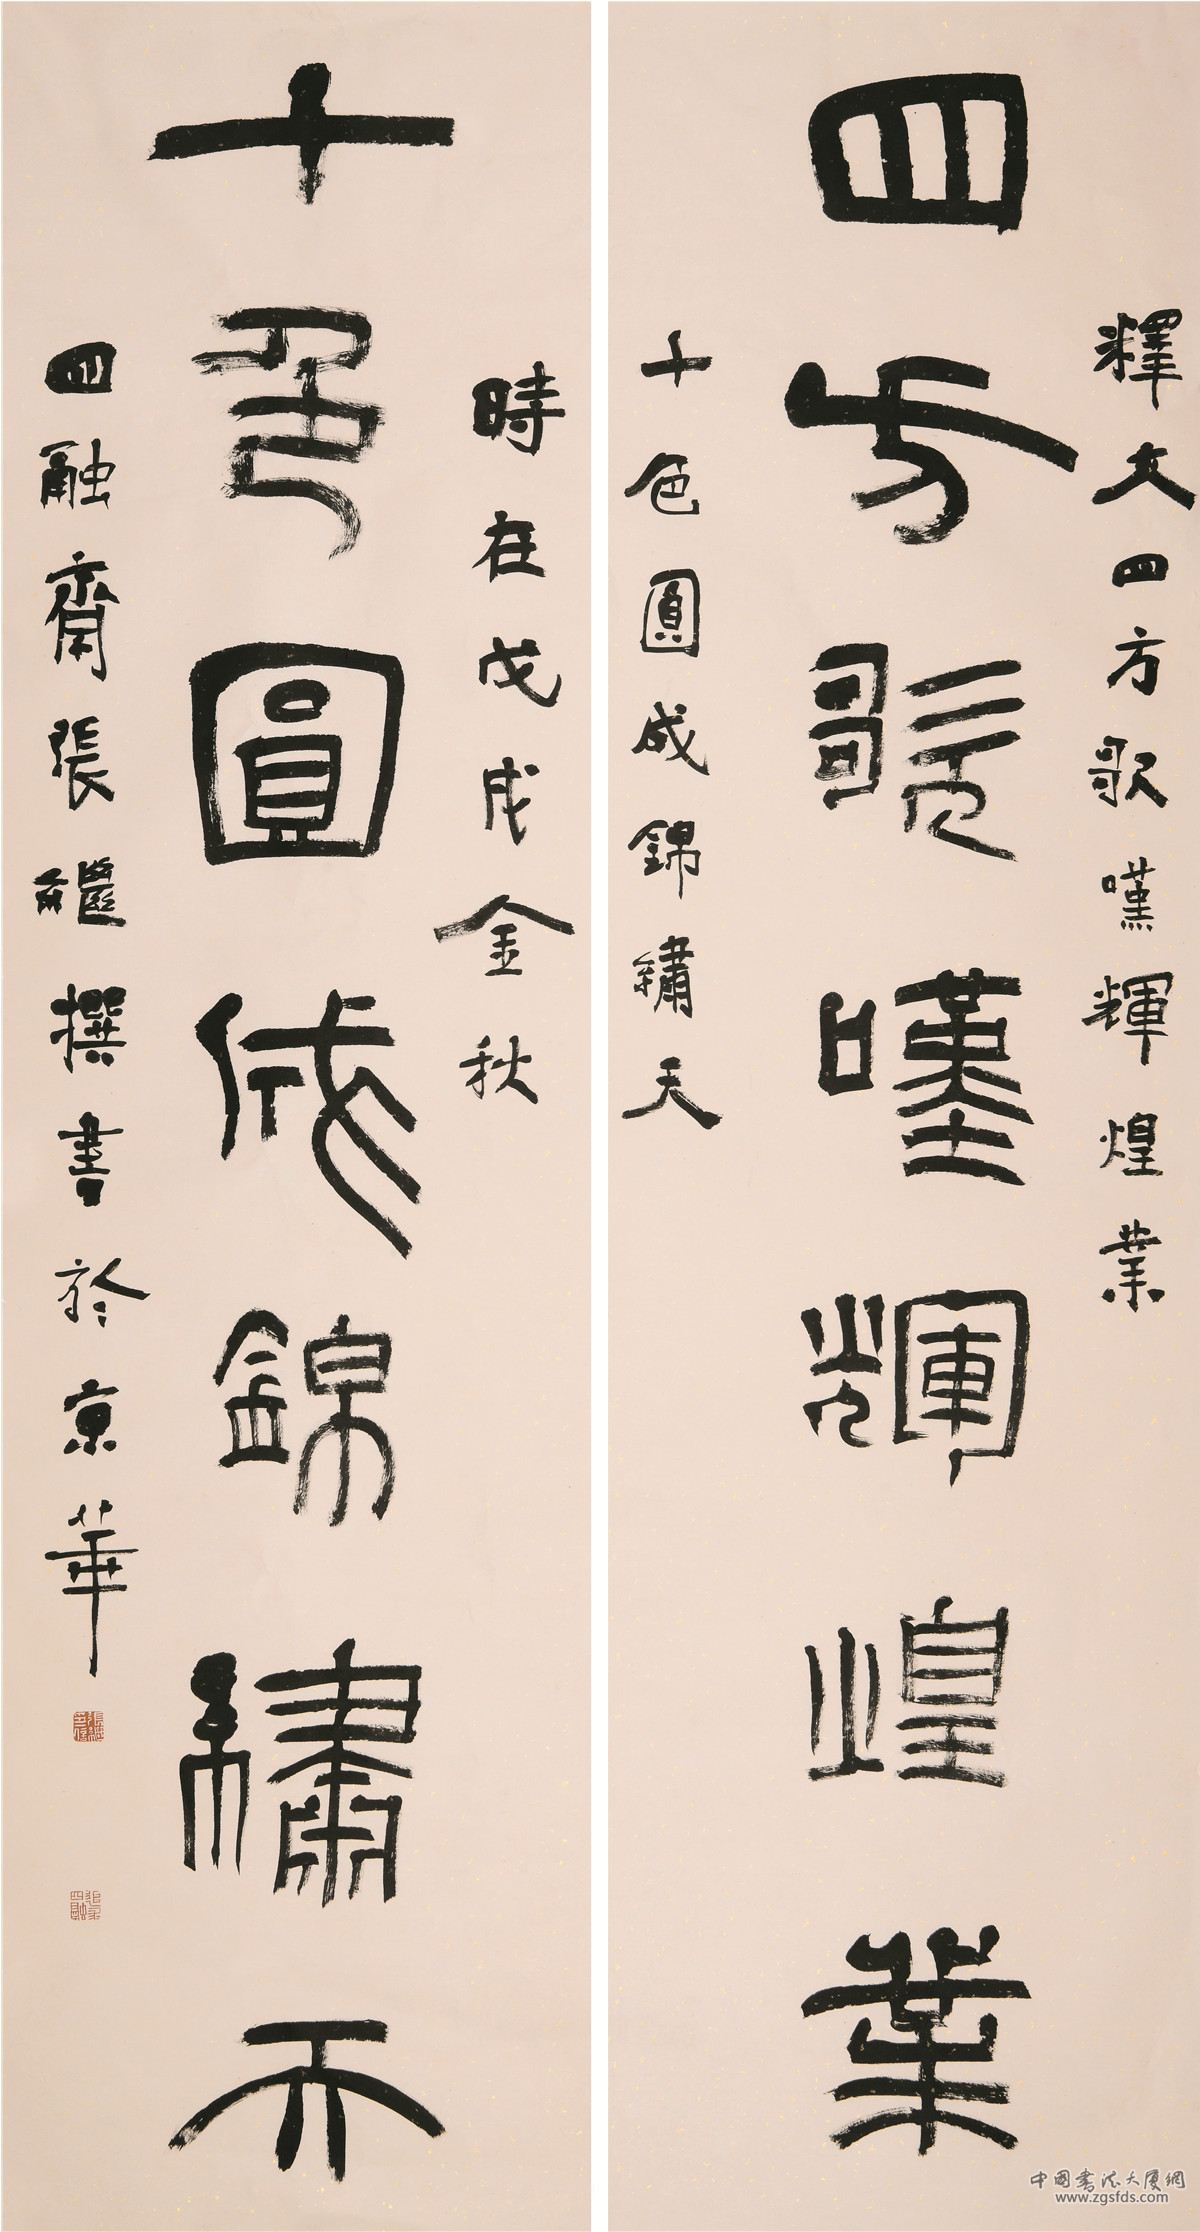 四方歌嘆輝煌業
釋文四方歌嘆輝煌業
十色圓成錦繡天
十色圓成錦繡天
時在戊戌金秋
四融齋張繼撰書於京華
中国书法大厦網
www.zgsfds.com